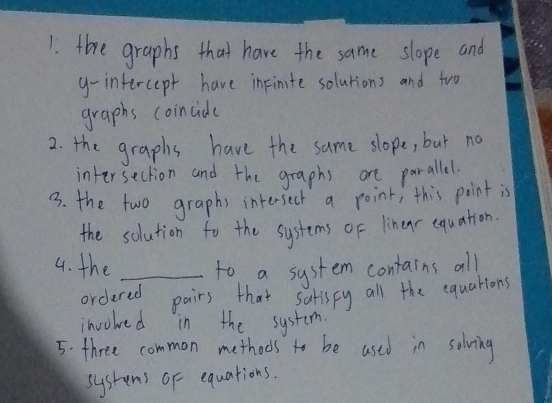 1. the graphs that have the same slope and
y-intercept have infinite solutions and two
graphs coincide
2. the graphs have the same slope, but no
intersection and the graphs are parallel.
3. the two graphs intersect a point, this point is
the solution to the systems of linear equation.
4. the ________ to a system contains all
ordered pairs that satisfy all the equations
involved in the system.
5. three common methods to be used in solving
systems of equations.